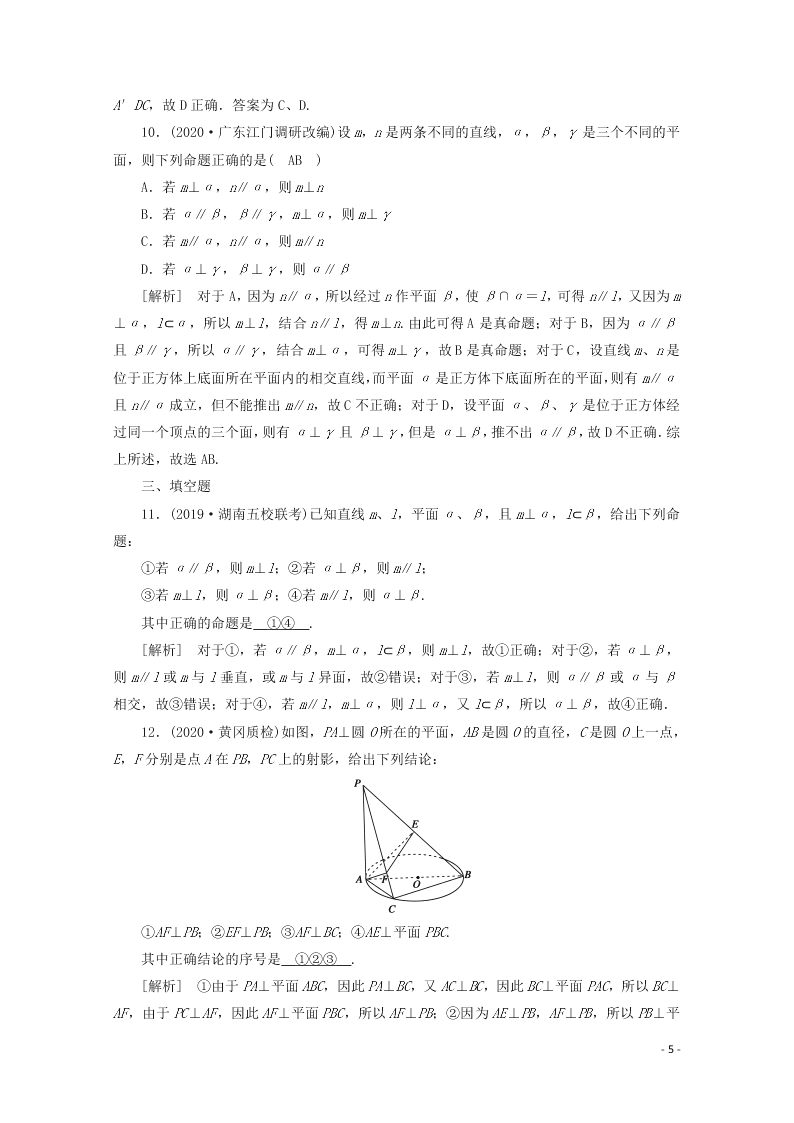 A′DC，故 D 正确．答案为 C、D.
10．(2020·广东江门调研改编)设 m，n 是两条不同的直线，α，β，γ 是三个不同的平
面，则下列命题正确的是(  AB  )
A．若 m⊥α，n∥α，则 m⊥n
B．若 α∥β，β∥γ，m⊥α，则 m⊥γ
C．若 m∥α，n∥α，则 m∥n
D．若 α⊥γ，β⊥γ，则 α∥β
[解析]  对于 A，因为 n∥α，所以经过 n 作平面 β，使 β∩α＝l，可得 n∥l，又因为 m
⊥α，l⊂α，所以 m⊥l，结合 n∥l，得 m⊥n.由此可得 A 是真命题；对于 B，因为 α∥β
且 β∥γ，所以 α∥γ，结合 m⊥α，可得 m⊥γ，故 B 是真命题；对于 C，设直线 m、n 是
位于正方体上底面所在平面内的相交直线，而平面 α 是正方体下底面所在的平面，则有 m∥α
且 n∥α 成立，但不能推出 m∥n，故 C 不正确；对于 D，设平面 α、β、γ 是位于正方体经
过同一个顶点的三个面，则有 α⊥γ 且 β⊥γ，但是 α⊥β，推不出 α∥β，故 D 不正确．综
上所述，故选 AB.
三、填空题
11．(2019·湖南五校联考)已知直线 m、l，平面 α、β，且 m⊥α，l⊂β，给出下列命
题：
①若 α∥β，则 m⊥l；②若 α⊥β，则 m∥l；
③若 m⊥l，则 α⊥β；④若 m∥l，则 α⊥β.
其中正确的命题是  ①④  .
[解析]  对于①，若 α∥β，m⊥α，l⊂β，则 m⊥l，故①正确；对于②，若 α⊥β，
则 m∥l 或 m 与 l 垂直，或 m 与 l 异面，故②错误；对于③，若 m⊥l，则 α∥β 或 α 与 β
相交，故③错误；对于④，若 m∥l，m⊥α，则 l⊥α，又 l⊂β，所以 α⊥β，故④正确．
12．(2020·黄冈质检)如图，PA⊥圆 O 所在的平面，AB 是圆 O 的直径，C 是圆 O 上一点，
E，F 分别是点 A 在 PB，PC 上的射影，给出下列结论：
P
E
A F O B
C
①AF⊥PB；②EF⊥PB；③AF⊥BC；④AE⊥平面 PBC.
其中正确结论的序号是  ①②③  .
[解析]  ①由于 PA⊥平面 ABC，因此 PA⊥BC，又 AC⊥BC，因此 BC⊥平面 PAC，所以 BC⊥
AF，由于 PC⊥AF，因此 AF⊥平面 PBC，所以 AF⊥PB；②因为 AE⊥PB，AF⊥PB，所以 PB⊥平
- 5 -